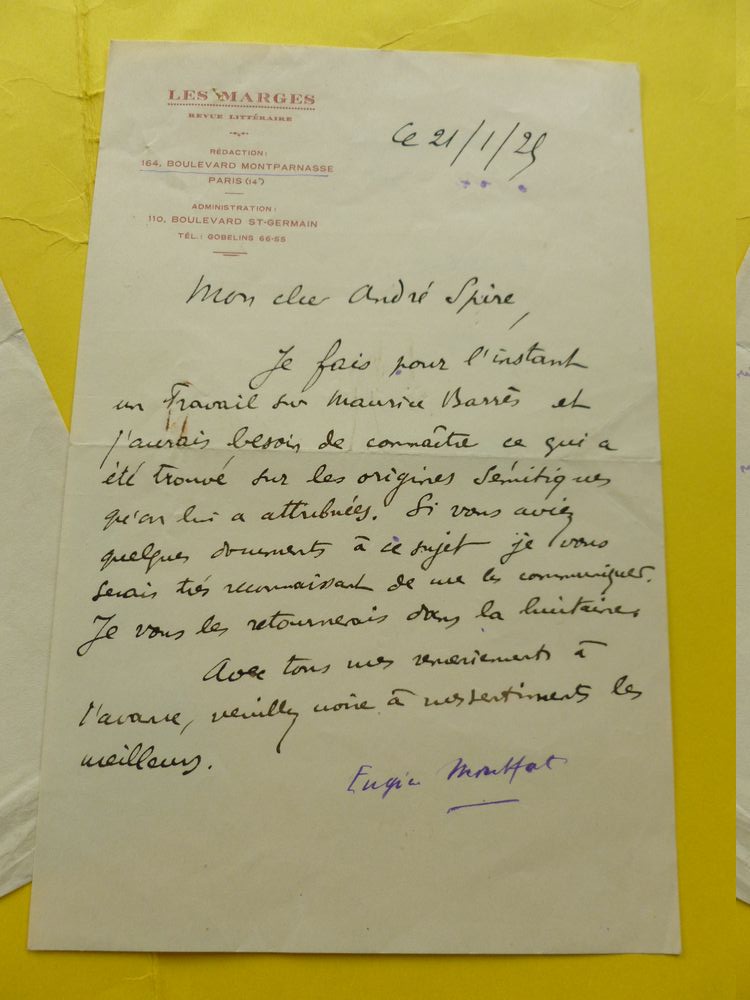 LES MARGES
REVUE LITTÉRAIRE
RÉDACTION :
164, BOULEVARD MONTPARNASSE
PARIS (14e)
ADMINISTRATION :
110, BOULEVARD ST-GERMAIN
TÉL. : GOBELINS 66-55
Ce 21/1/25
Mon cher André Spire,
Je fais pour l'instant
un Travail sur Maurice Barrès et
j'aurais besoin de connaître ce qui a
été trouvé sur les origines Sémitiques
qu'on lui a attribuées. Si vous aviez
quelques documents à ce sujet je vous
serais très reconnaissant de me les communiquer.
Je vous les retournerais dans la huitaine.
Avec tous mes remerciements à
l'avance, veuillez croire à mes sentiments les
meilleurs.
Eugène Montfort